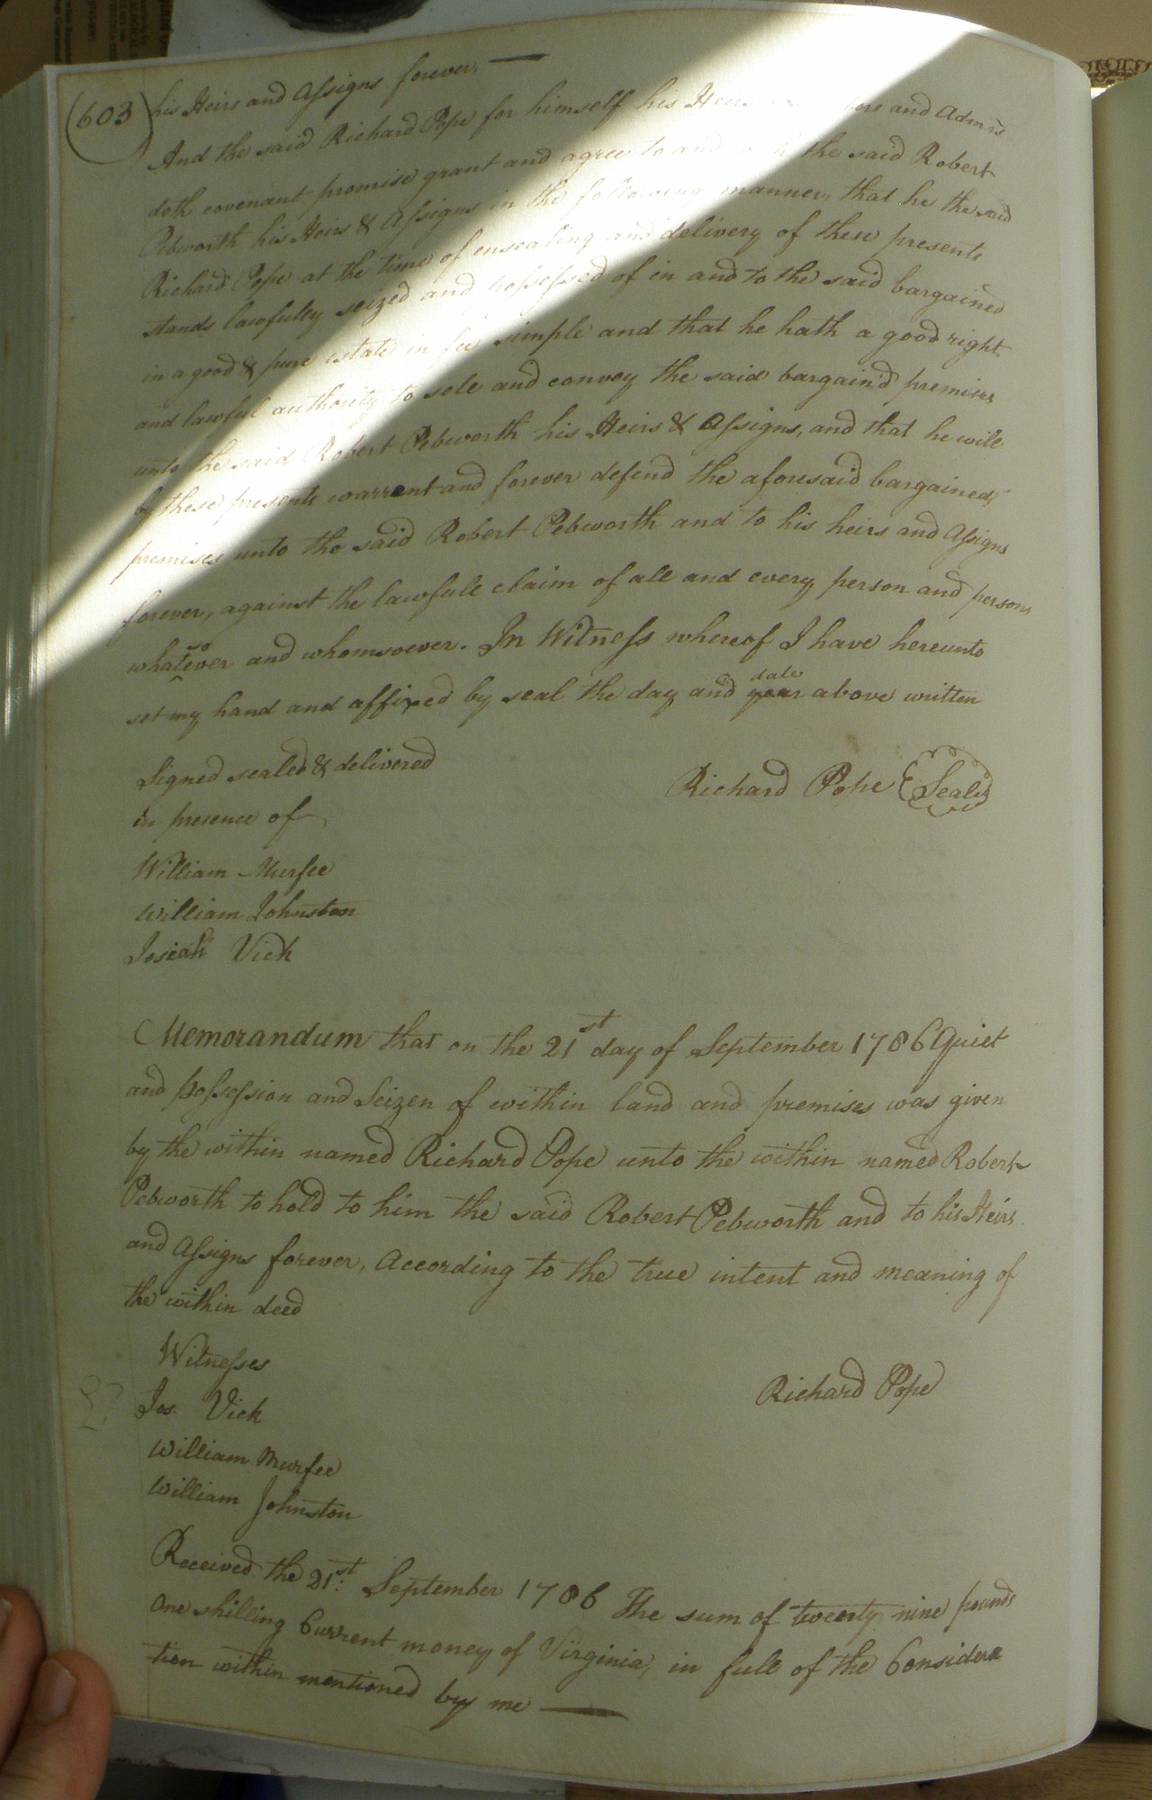 (603) his Heirs and Assigns forever. —
And the said Richard Pope for himself his Heirs and Admrs
doth covenant, promise grant and agree to and the said Robert
Pebworth his Heirs & Assigns in the following manner, that he the said
Richard Pope at the time of ensealing and delivery of these presents
stands lawfully seized and possessed of in and to the said bargained
in a good & pure estate in fee simple and that he hath a good right
and lawful authority to sele and convey the said bargain'd premises
unto the said Robert Pebworth his Heirs & Assigns, and that he will
by these presents warrent and forever defend the aforesaid bargained
premises unto the said Robert Pebworth and to his heirs and Assigns
forever, against the lawfull claim of all and every person and persons
whatsoever and whomsoever. In Witness whereof I have hereunto
set my hand and affixed by seal the day and year date above written
Signed sealed & delivered
Richard Pope (Seal)
in presence of
William Murfee
William Johnston
Josiah Vick
Memorandum that on the 21st day of September 1786 Quiet
and possession and Seizen of within land and premises was given
by the within named Richard Pope unto the within named Robert
Pebworth to hold to him the said Robert Pebworth and to his Heirs
and Assigns forever, according to the true intent and meaning of
the within deed
Witnesses
Richard Pope
Jos. Vick
William Murfee
William Johnston
Received the 21st: September 1786 The sum of twenty nine pounds
one shilling Current money of Virginia, in full of the Considera
tion within mentioned by me —